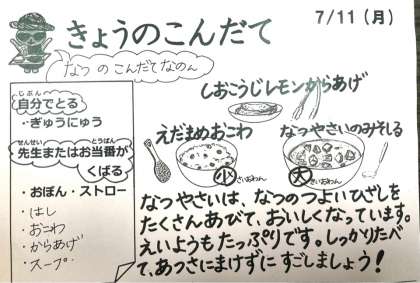 きょうのこんだて
7/11（月）
なつ の こんだてなのん
しおこうじレモンからあげ
じぶん
自分でとる
・ぎゅうにゅう
せんせい とうばん
先生またはお当番が
くばる
・おぼん・ストロー
・はし
・おこわ
・からあげ
・スープ
えだまめおこわ
小
さいおわん
なつやさいのみそしる
大
さいおわん
なつやさいは、なつのつよいひざしを
たくさんあびて、おいしくなっています。
えいようもたっぷりです。しっかりたべ
て、あつさにまけずに すごしましょう！